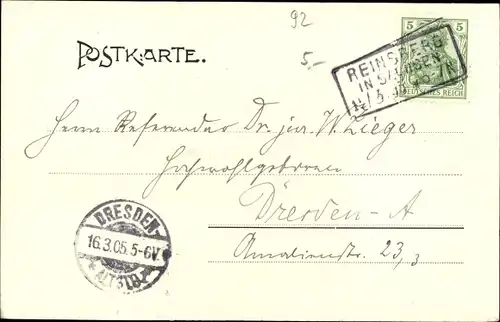 92
5
5
5.-
DEUTSCHES REICH
POSTKARTE.
REINSBERG
IN SACHSEN
Herrn Referendar Dr. jur. W. Zieger
Hochwohlgeboren
Dresden-A
Amalienstr. 23, 3
DRESDEN-
16.3.05.5-6V.
ALTST.